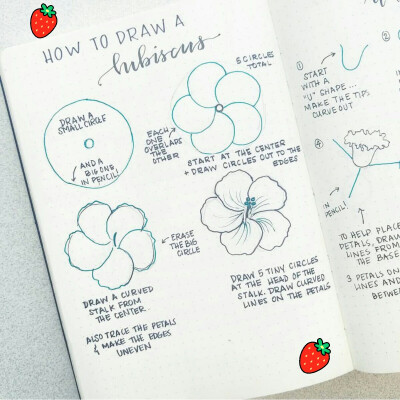 HOW TO DRAW A
hibiscus
DRAW A
SMALL CIRCLE
AND A
BIG ONE,
IN PENCIL!
5 CIRCLES
TOTAL
EACH
ONE
OVERLAPS
THE
OTHER
START AT THE CENTER
+ DRAW CIRCLES OUT TO THE
EDGES
ERASE
THE BIG
CIRCLE
DRAW A CURVED
STALK FROM
THE CENTER.
ALSO TRACE THE PETALS
& MAKE THE EDGES
UNEVEN
DRAW 5 TINY CIRCLES
AT THE HEAD OF THE
STALK. DRAW CURVED
LINES ON THE PETALS
①
START
WITH A
"U" SHAPE...
MAKE THE TIPS
CURVE OUT
④
PENCIL!
TO HELP PLACE
PETALS, DRAW
LINES FROM
THE BASE
3 PETALS ON
LINES AND
BETWE